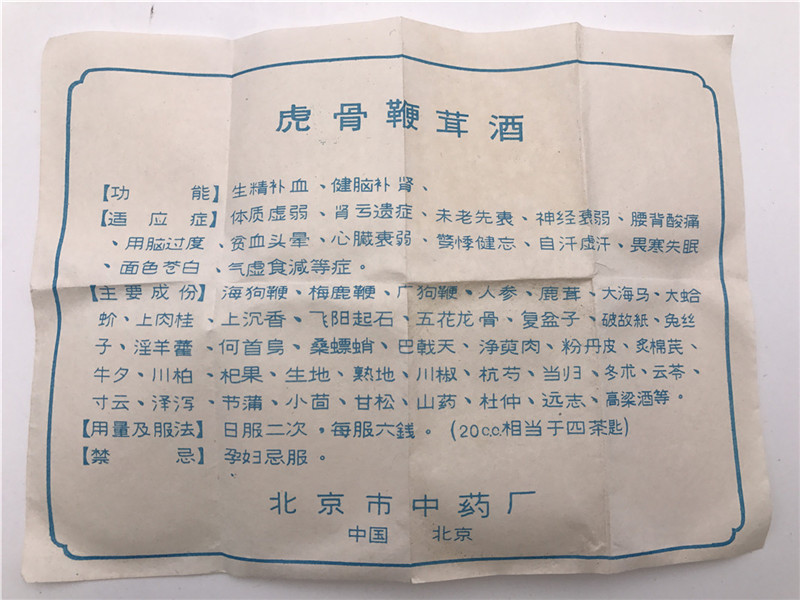 虎骨鞭茸酒
【功 能】生精补血、健脑补肾、
【适应症】体质虚弱、肾亏遗症、未老先衰、神经衰弱、腰背酸痛
、用脑过度、贫血头晕、心臓衰弱、驚悸健忘、自汗虚汗、畏寒失眠
、面色苍白、气虚食減等症。
【主要成份】海狗鞭、梅鹿鞭、广狗鞭、人参、鹿茸、大海马、大蛤
蚧、上肉桂、上沉香、飞阳起石、五花龙骨、复盆子、破故紙、兔丝
子、淫羊藿、何首烏、桑螵蛸、巴戟天、净萸肉、粉丹皮、炙棉芪、
牛夕、川柏、杞果、生地、熟地、川椒、杭芍、当归、冬朮、云苓、
寸云、泽泻、节蒲、小茴、甘松、山药、杜仲、远志、高梁酒等。
【用量及服法】日服二次，每服六錢。(20c.c.相当于四茶匙)
【禁 忌】孕妇忌服。
北京市中药厂
中国 北京